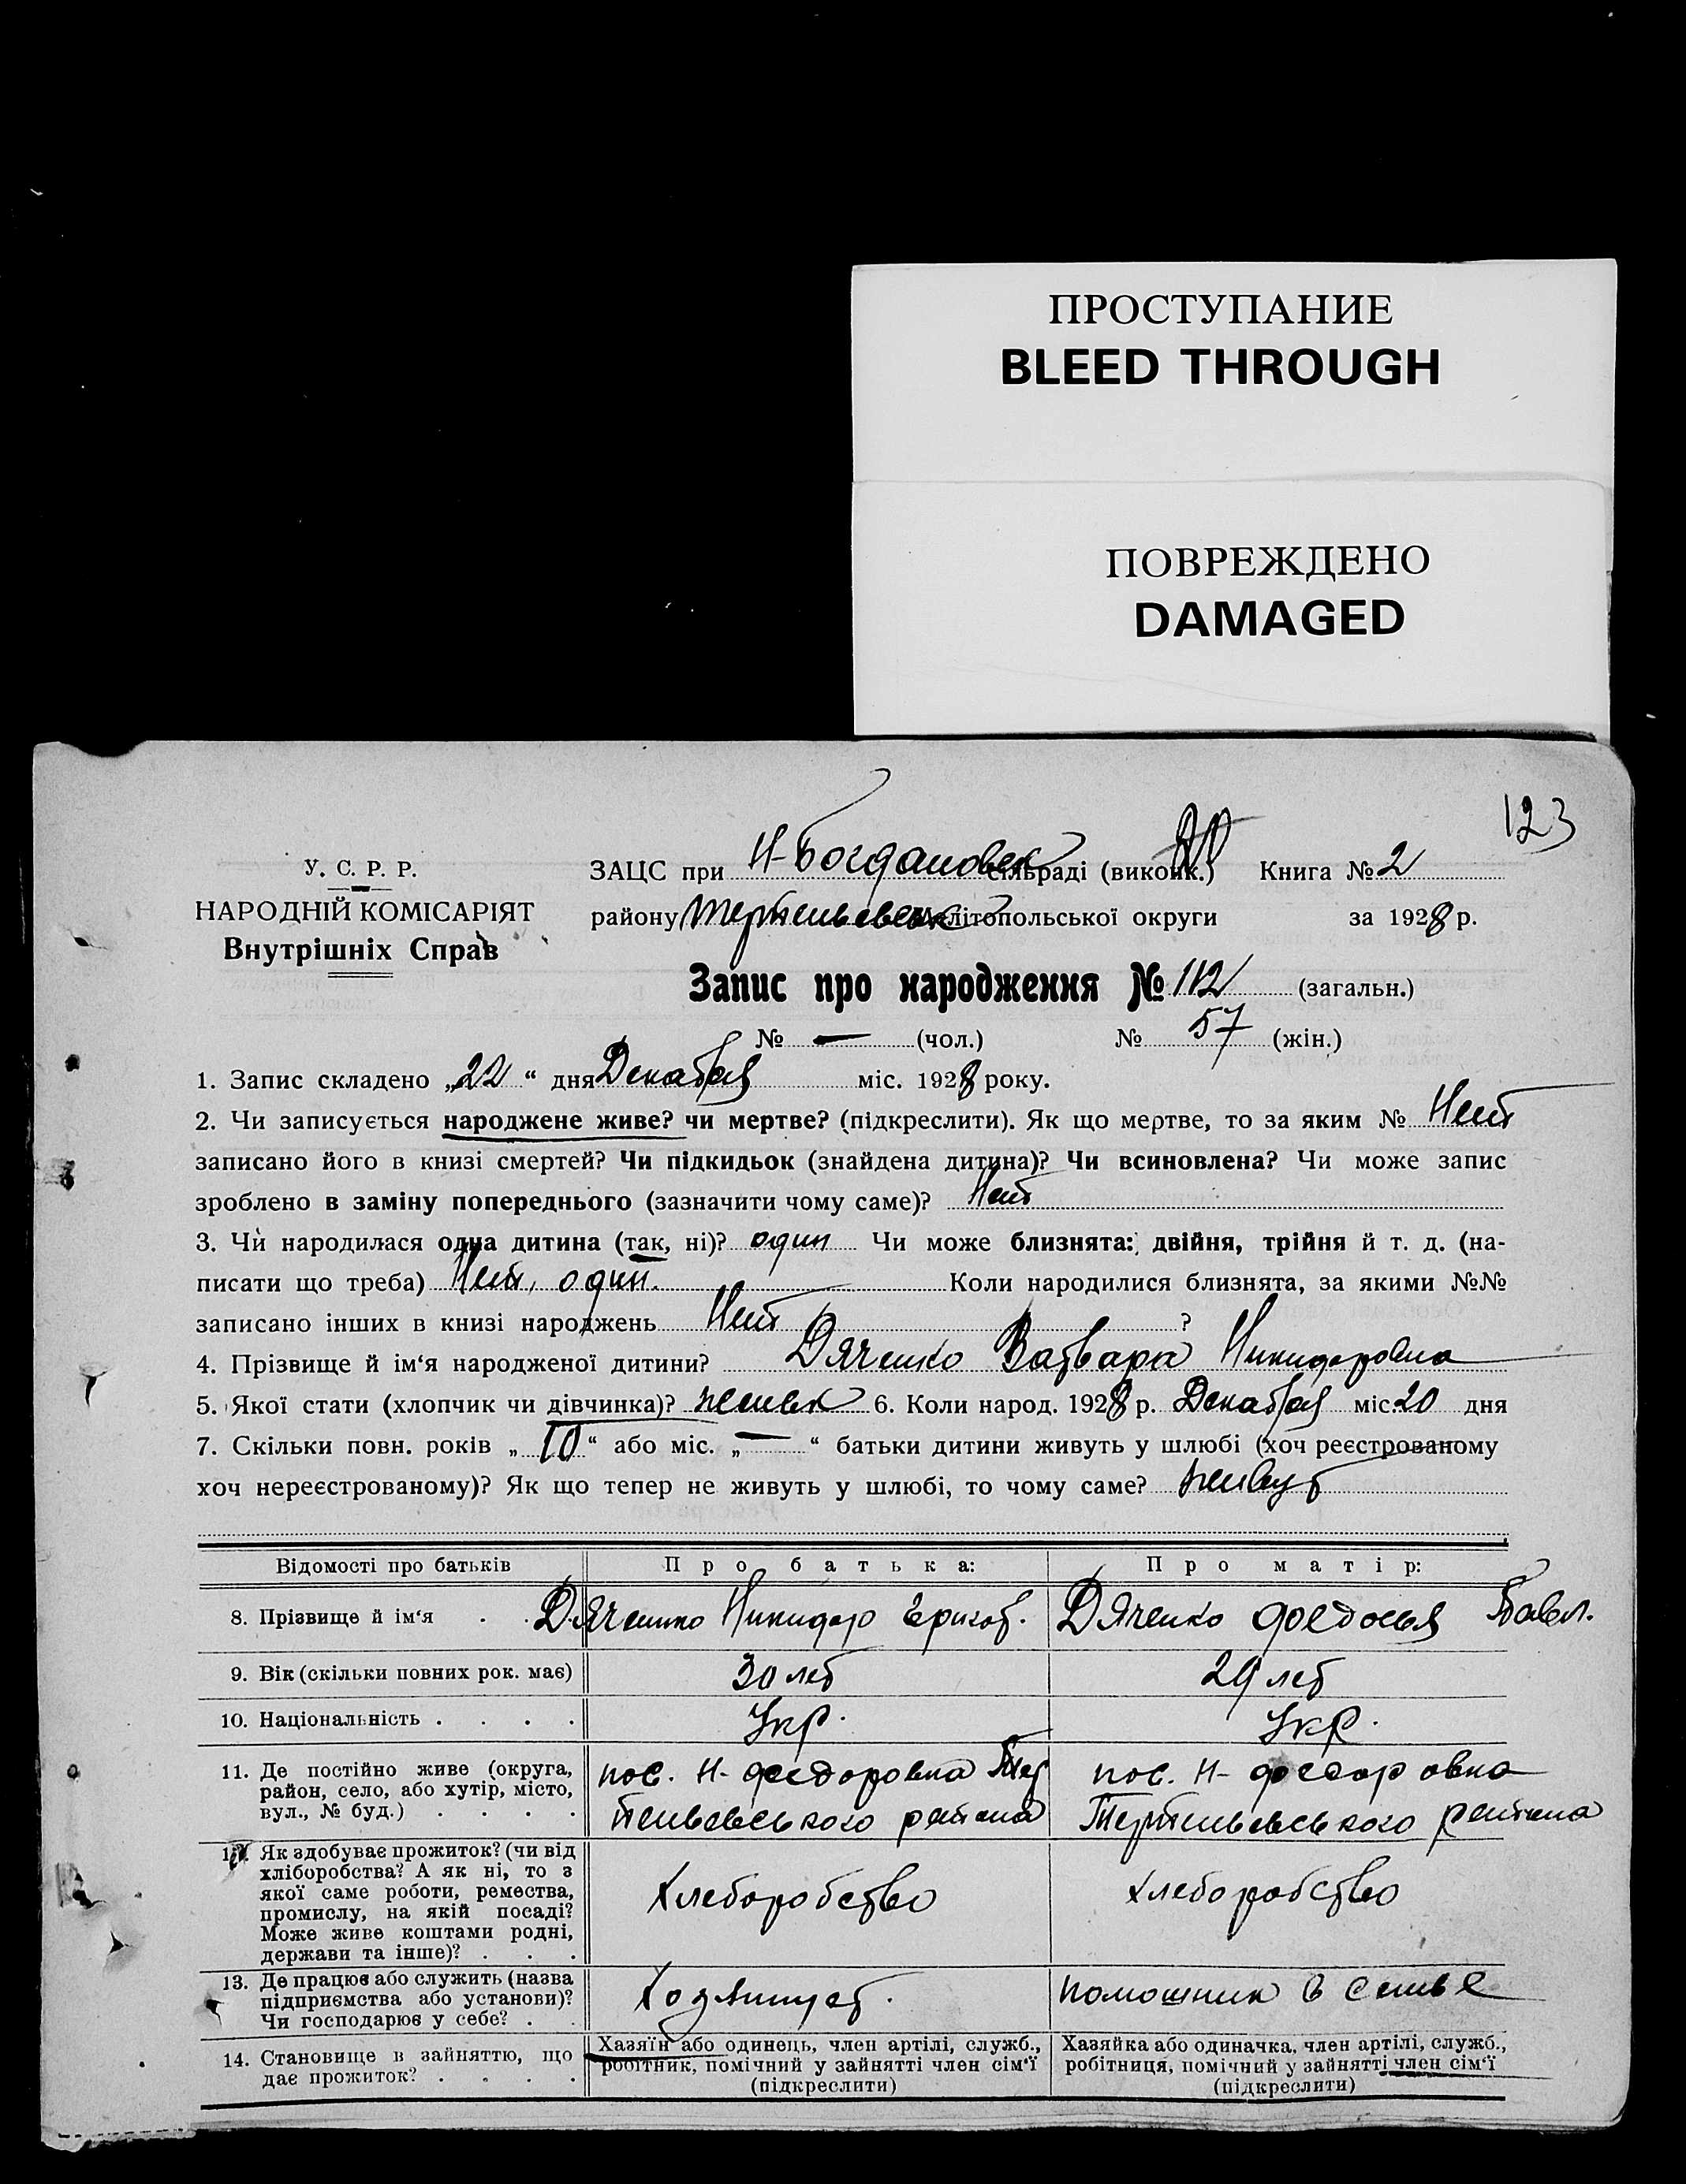 ПРОСТУПАНИЕ
BLEED THROUGH
ПОВРЕЖДЕНО
DAMAGED
123
У. С. Р. Р.
НАРОДНІЙ КОМІСАРІЯТ
Внутрішніх Справ
ЗАЦС при Н-Богдановск сільраді (виконк.) Книга № 2
району Мелітопольської округи за 1928 р.
Запис про народження № 112 (загальн.)
№ — (чол.) № 57 (жін.)
1. Запис складено „22“ дня Декабря міс. 1928 року.
2. Чи записується народжене живе? чи мертве? (підкреслити). Як що мертве, то за яким № Нет
записано його в книзі смертей? Чи підкидьок (знайдена дитина)? Чи всиновлена? Чи може запис
зроблено в заміну попереднього (зазначити чому саме)? Нет
3. Чи народилася одна дитина (так, ні)? один Чи може близнята: двійня, трійня й т. д. (на-
писати що треба) Нет, один. Коли народилися близнята, за якими №№
записано інших в книзі народжень Нет ?
4. Прізвище й ім‘я народженої дитини? Дяченко Варвара Никидоровна
5. Якої стати (хлопчик чи дівчинка)? женск 6. Коли народ. 1928 р. Декабря міс. 20 дня
7. Скільки повн. років „10“ або міс. „—“ батьки дитини живуть у шлюбі (хоч реєстрованому
хоч нереєстрованому)? Як що тепер не живуть у шлюбі, то чому саме? живут
Відомості про батьків Про батька: Про матір:
8. Прізвище й ім‘я . . Дяченко Никидор Дяченко Федосья Павл.
9. Вік (скільки повних рок. має) 30 лет 29 лет
10. Національність . . . . Укр. Укр.
11. Де постійно живе (округа, район, село, або хутір, місто, вул., № буд.) . . . .
пос. Н-Федоровка района
пос. Н-Федоровка района
12. Як здобуває прожиток? (чи від
хліборобства? А як ні, то з
якої саме роботи, ремества,
промислу, на якій посаді?
Може живе коштами родні,
держави та інше)? . . .
Хлеборобство Хлеборобство
13. Де працює або служить (назва
підприємства або установи)?
Чи господарює у себе? . .
помошник в семье
14. Становище в зайняттю, що
дає прожиток? . . . .
Хазяїн або одинець, член артілі, служб.,
робітник, помічний у зайнятті член сім‘ї
(підкреслити)
Хазяйка або одиначка, член артілі, служб.,
робітниця, помічний у зайнятті член сім‘ї
(підкреслити)